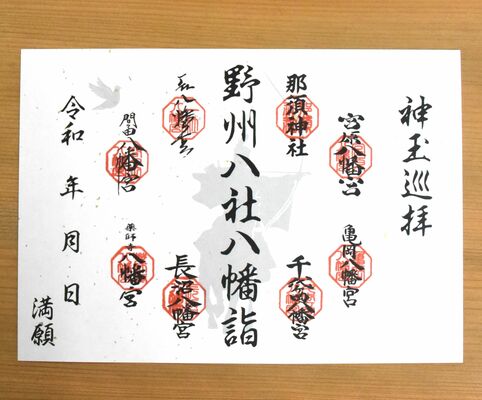 神玉巡拝
宮原八幡宮
亀岡八幡宮
那須神社
八幡宮
野州八社八幡詣
八幡宮
長沼八幡宮
間々田八幡宮
薬師寺八幡宮
令和 年 月 日
満願